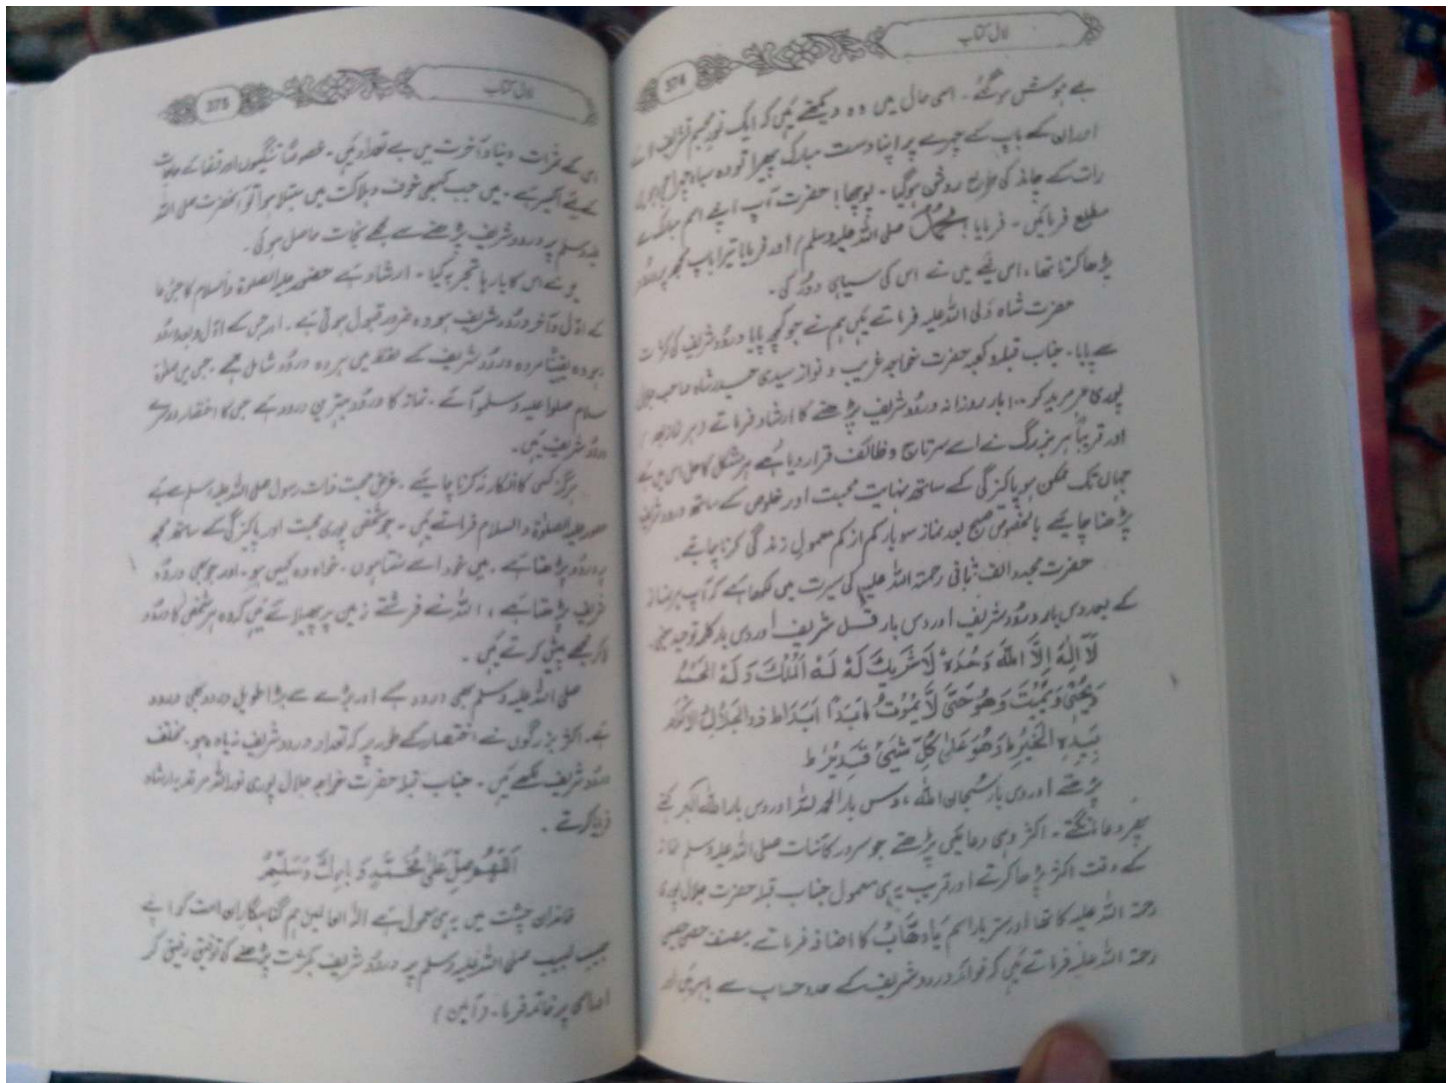 لال کتاب
374
بے ہوش ہو گئے۔ اسی حال میں وہ دیکھتے ہیں کہ ایک نور مجسم تشریف لائے
اور ان کے باپ کے چہرے پر اپنا دست مبارک پھیرا تو وہ سیاہ چہرا
رات کے چاند کی طرح روشن ہوگیا۔ پوچھا! حضرت آپ اپنے اسم مبارک سے
مطلع فرمائیں۔ فرمایا! محمد صلی اللہ علیہ وسلم اور فرمایا تیرا باپ مجھ پر درود
پڑھا کرتا تھا، اس لیے میں نے اس کی سیاہی دور کی۔
حضرت شاہ ولی اللہ علیہ فرماتے ہیں ہم نے جو کچھ پایا درود شریف کی کثرت
سے پایا۔ جناب قبلہ و کعبہ حضرت خواجہ غریب و نواز سیدی حیدر شاہ صاحب جلال
پوری ہر مرید کو ۱۰۰ بار روزانہ درود شریف پڑھنے کا ارشاد فرماتے
اور قریباً ہر بزرگ نے اسے سرتاج وظائف قرار دیا ہے ہر مشکل کا حل اس میں ہے
جہاں تک ممکن ہو پاکیزگی کے ساتھ نہایت محبت اور خلوص کے ساتھ درود شریف
پڑھنا چاہیے بالخصوص صبح بعد نماز سو بار کم از کم معمول زندگی کرنا چاہیے۔
حضرت مجدد الف ثانی رحمۃ اللہ علیہ کی سیرت میں لکھا ہے کہ آپ ہر نماز
کے بعد دس بار درود شریف اور دس بار قل شریف اور دس بار کلمہ توحید
لَآ اِلٰہَ اِلَّا اللہُ وَحْدَہٗ لَا شَرِیْکَ لَہٗ لَہُ الْمُلْکُ وَلَہُ الْحَمْدُ
وَیُحْیٖ وَیُمِیْتُ وَھُوَ حَیٌّ لَّا یَمُوْتُ اَبَدًا اَبَدًا ط ذوالجلال والاکرام
بِیَدِہِ الْخَیْرِ ط وَھُوَ عَلٰی کُلِّ شَیْئٍ قَدِیْرٌ ط
پڑھتے اور دس بار سُبحان اللہ، دس بار الحمد للہ اور دس بار اللہ اکبر کہتے
پھر دعا مانگتے۔ اکثر وہی دعائیں پڑھتے جو سرور کائنات صلی اللہ علیہ وسلم نماز
کے وقت اکثر پڑھا کرتے اور قریب یہ ہی معمول جناب قبلہ حضرت جلال پوری
رحمۃ اللہ علیہ کا تھا اور ستر بار اسم یَا وَھَّابُ کا اضافہ فرماتے مصنف حصن حصین
رحمۃ اللہ علیہ فرماتے ہیں کہ فوائد درود شریف کے حد و حساب سے باہر ہیں اور
لال کتاب
375
اس کے ثمرات دنیا و آخرت میں بے تعداد ہیں۔ خصوصاً تنگیوں اور قضائے حاجات
کے لیے اکسیر ہے۔ میں جب کبھی خوف و ہلاکت میں مبتلا ہوا تو آنحضرت صلی اللہ
علیہ وسلم پر درود شریف پڑھنے سے مجھے نجات حاصل ہوئی۔
اس کا بارہا تجربہ کیا۔ ارشاد ہے حضور علیہ الصلوۃ والسلام کا جس دعا
کے اوّل و آخر درود شریف ہو وہ ضرور قبول ہوتی ہے۔ اور جس کے اوّل و بعد درود
نہ ہو وہ یقیناً درود شریف کے لفظ میں ہر وہ درود شامل ہے۔ جس میں صلوٰۃ
سلام صلوا علیہ وسلمو آئے۔ نماز کا درود بہترین درود ہے جس کا اختصار دوسرے
درود شریف ہیں۔
ہرگز کسی کا انکار نہ کرنا چاہیئے۔ غرض محبت ذات رسول صلی اللہ علیہ وسلم سے ہے
حضور علیہ الصلوٰۃ والسلام فرماتے ہیں۔ جو شخص پوری محبت اور پاکیزگی کے ساتھ مجھ
پر درود پڑھتا ہے۔ میں خود اسے سنتا ہوں۔ خواہ وہ کہیں ہو۔ اور جو بھی درود
شریف پڑھتا ہے، اللہ نے فرشتے زمین پر پھیلائے ہیں کہ وہ ہر شخص کا درود
لا کر مجھے پیش کرتے ہیں۔
صلی اللہ علیہ وسلم بھی درود ہے اور بڑے سے بڑا طویل درود بھی درود
ہے۔ اکثر بزرگوں نے اختصار کے طور پر کہ تعداد درود شریف زیادہ ہو۔ مختلف
درود شریف لکھے ہیں۔ جناب قبلہ حضرت خواجہ جلال پوری نور اللہ مرقدہ ارشاد
فرمایا کرتے۔
اَللّٰھُمَّ صَلِّ عَلٰی مُحَمَّدٍ وَّ بَارِکْ وَسَلِّمْ
خاندان چشت میں یہ ہی معمول ہے الہٰ العالمین ہم گناہگاران امت کو اپنے
حبیب لبیب صلی اللہ علیہ وسلم پر درود شریف بکثرت پڑھنے کی توفیق رفیق کر
اور اسی پر خاتمہ فرما۔ (آمین)